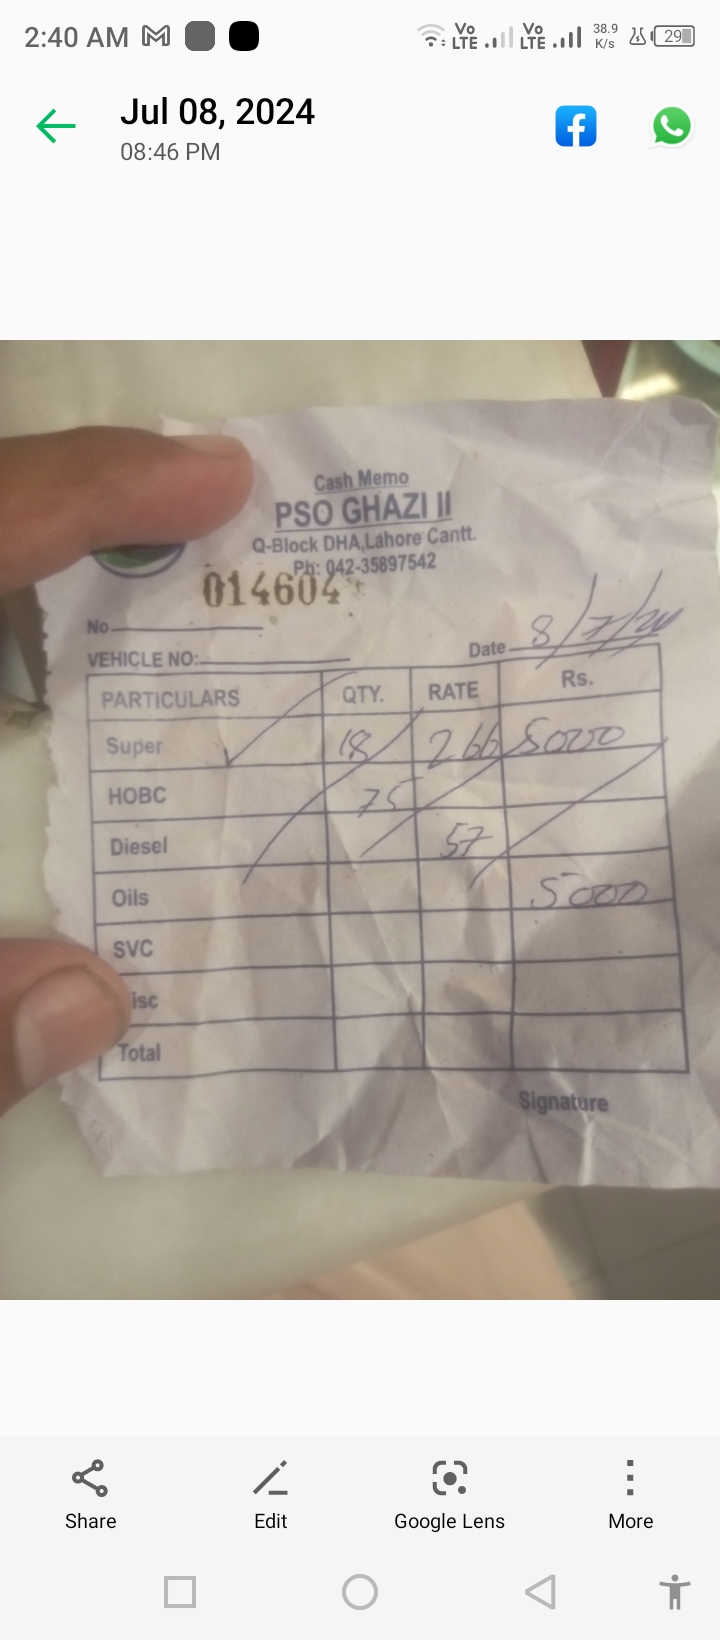 2:40 AM Vo LTE Vo LTE 38.9 K/s 29
Jul 08, 2024
08:46 PM
Cash Memo
PSO GHAZI II
Q-Block DHA,Lahore Cantt.
Ph: 042-35897542
014604
No
VEHICLE NO:
Date 8/7/24
PARTICULARS QTY. RATE Rs.
Super 18 266 5000
HOBC 75
Diesel 57
Oils 5000
SVC
isc
Total
Signature
Share Edit Google Lens More